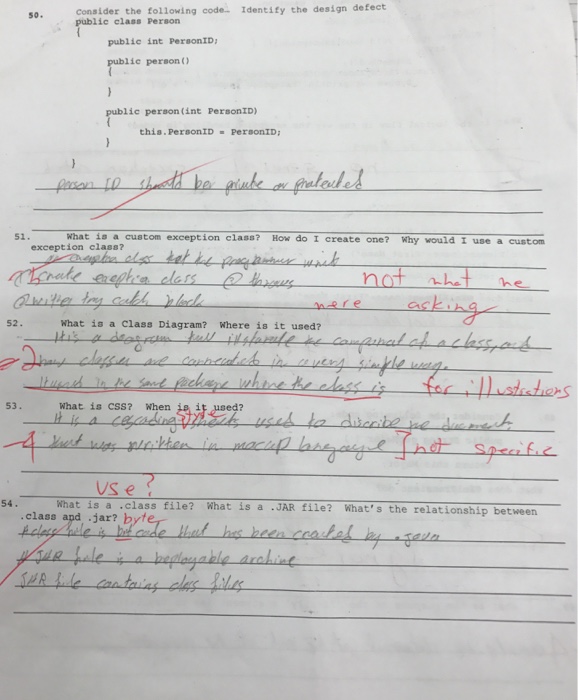 50. Consider the following code. Identify the design defect
public class Person
{
public int PersonID;
public person()
{
}
public person(int PersonID)
{
this.PersonID = PersonID;
}
}
person ID should be private or protected
51. What is a custom exception class? How do I create one? Why would I use a custom
exception class?
class that the programmer
create class throws
not what we
try catch block
were asking
52. What is a Class Diagram? Where is it used?
It's a diagram of a class, and
-2 how classes are connected in a very simple way.
It used in the same package where the class is
for illustrations
53. What is CSS? When is it used?
style
It is a cascading sheets used to discribe
-4 that was written in langauge ] not specific
use?
54. What is a .class file? What is a .JAR file? What's the relationship between
.class and .jar?
byte
A class is code that has been by .java
A JAR is a archive
JAR file contains class files